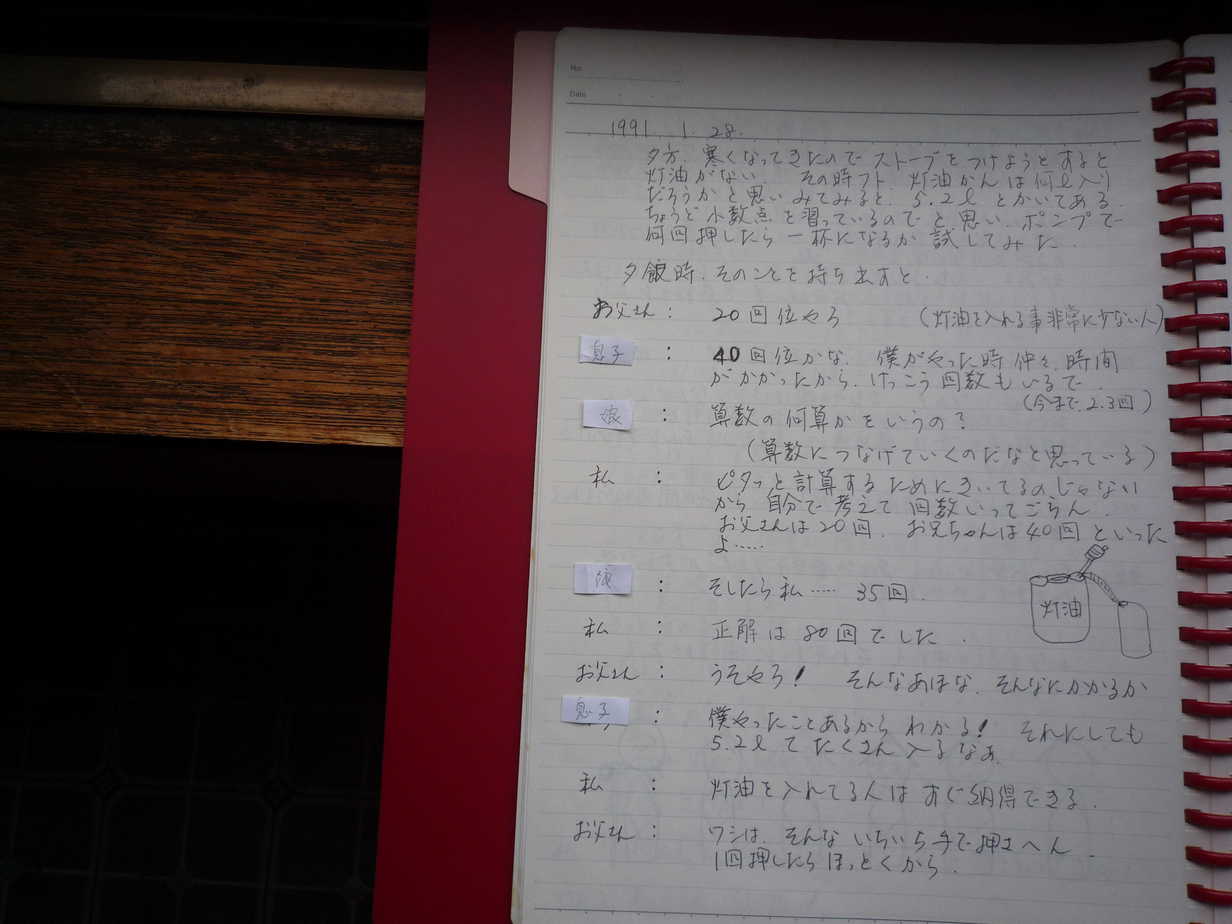 No.
Date
1991. 1. 28.
夕方、寒くなってきたので ストーブをつけようとすると
灯油がない。 その時フト、灯油かんは何ℓ入り
だろうかと思い みてみると、5.2ℓ とかいてある。
ちょうど 小数点を習っているのでと思い、ポンプで
何回押したら 一杯になるか 試してみた。
夕飯時、そのことを持ち出すと、
お父さん : 20回位やろ (灯油を入れる事非常に少ない人)
息子 : 40回位かな、僕がやった時 仲々、時間
がかかったから、けっこう回数もいるで。
(今まで 2.3回)
娘 : 算数の何算かをいうの?
(算数につなげていくのだなと思っている)
私 : ピタッと計算するためにきいてるのじゃない
から 自分で考えて 回数いってごらん。
お父さんは20回、お兄ちゃんは40回といった
よ……
娘 : そしたら私…… 35回。
灯油
私 : 正解は 80回でした。
お父さん : うそやろ! そんなあほな、そんなにかかるか
息子 : 僕やったことあるから わかる! それにしても
5.2ℓ て たくさん 入るなあ。
私 : 灯油を入れてる人は すぐ納得できる。
お父さん : ワシは、そんな いちいち手で押さへん。
1回押したら ほっとくから。